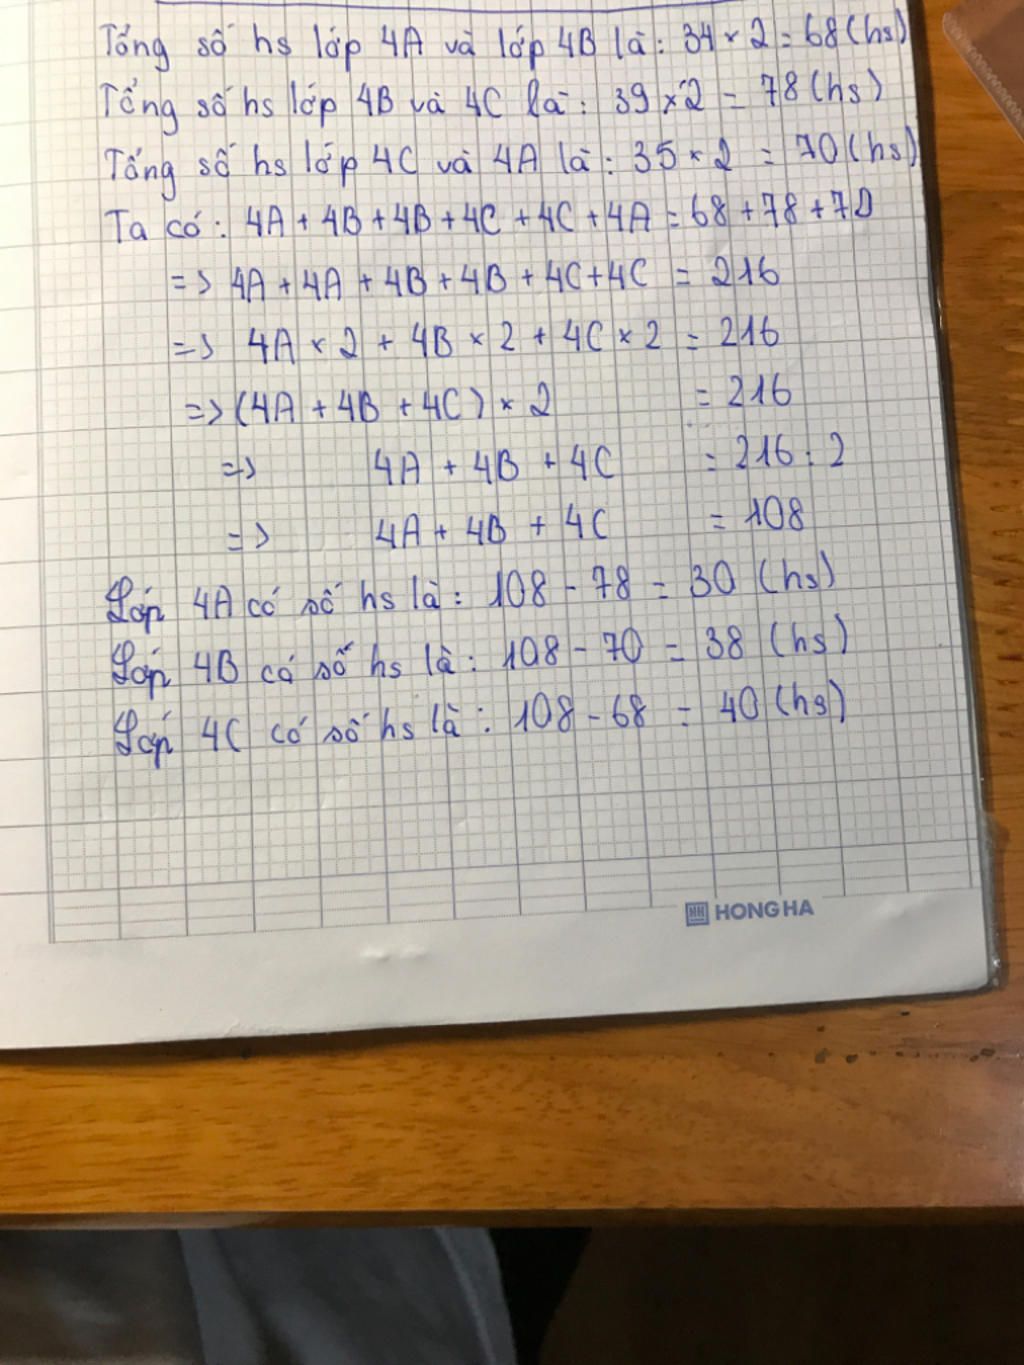 Tổng số hs lớp 4A và lớp 4B là: 34 × 2 = 68 (hs)
Tổng số hs lớp 4B và 4C là: 39 × 2 = 78 (hs)
Tổng số hs lớp 4C và 4A là: 35 × 2 = 70 (hs)
Ta có: 4A + 4B + 4B + 4C + 4C + 4A = 68 + 78 + 70
=> 4A + 4A + 4B + 4B + 4C + 4C = 216
=> 4A × 2 + 4B × 2 + 4C × 2 = 216
=> (4A + 4B + 4C) × 2 = 216
=> 4A + 4B + 4C = 216 : 2
=> 4A + 4B + 4C = 108
Lớp 4A có số hs là: 108 - 78 = 30 (hs)
Lớp 4B có số hs là: 108 - 70 = 38 (hs)
Lớp 4C có số hs là: 108 - 68 = 40 (hs)
HH HONG HA